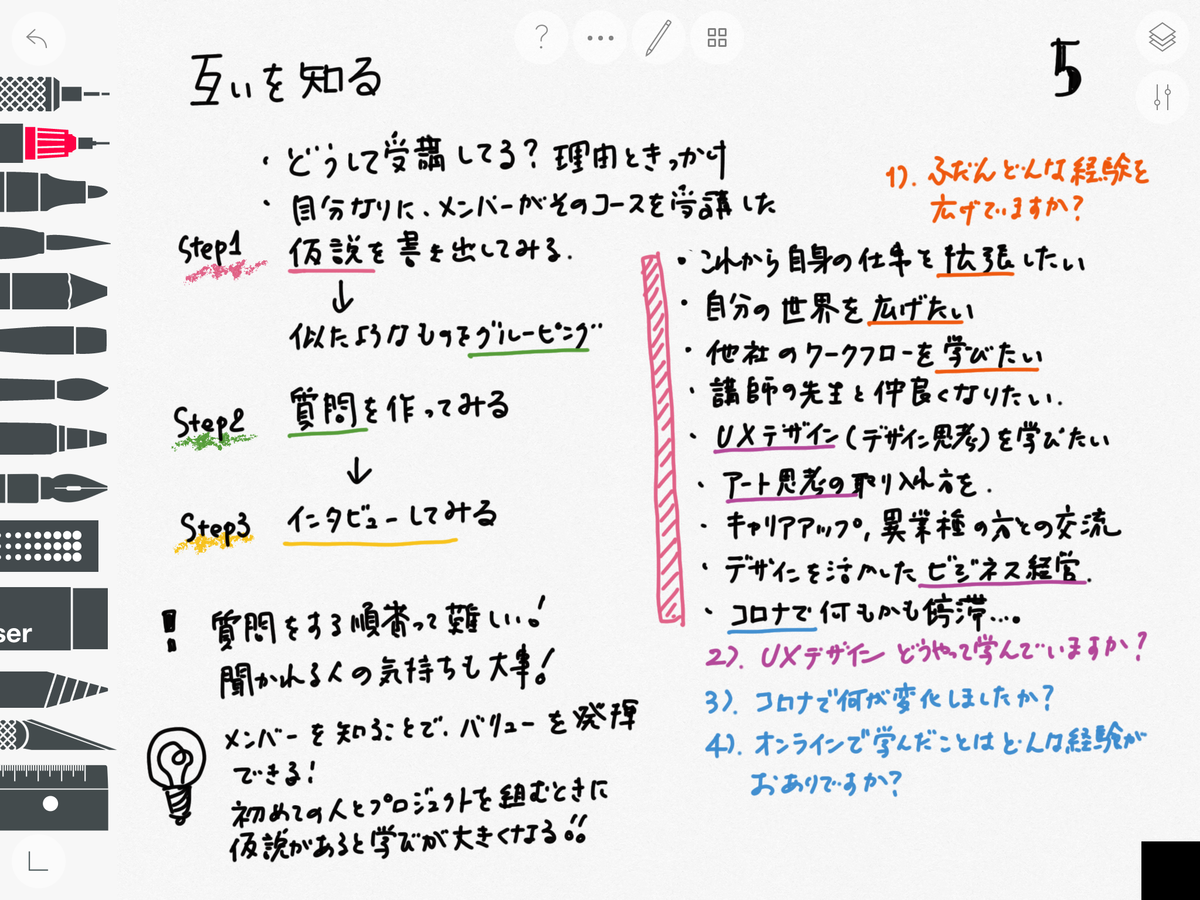 互いを知る
5
・どうして受講してる？理由ときっかけ
・自分なりに、メンバーがそのコースを受講した
Step1 仮説を書き出してみる.
↓
似たようなものをグルーピング
Step2 質問を作ってみる
↓
Step3 インタビューしてみる
! 質問をする順番って難しい!
聞かれる人の気持ちも大事!
メンバーを知ることで、バリューを発揮
できる!
初めての人とプロジェクトを組むときに
仮説があると学びが大きくなる!!
1). ふだんどんな経験を
広げていますか?
・これから自身の仕事を拡張したい
・自分の世界を広げたい
・他社のワークフローを学びたい
・講師の先生と仲良くなりたい.
・UXデザイン(デザイン思考)を学びたい
・アート思考の取り入れ方を.
・キャリアアップ, 異業種の方との交流
・デザインを活かしたビジネス経営.
・コロナで何もかも停滞...。
2). UXデザインどうやって学んでいますか?
3). コロナで何が変化しましたか?
4). オンラインで学んだことはどんな経験が
おありですか?
ser